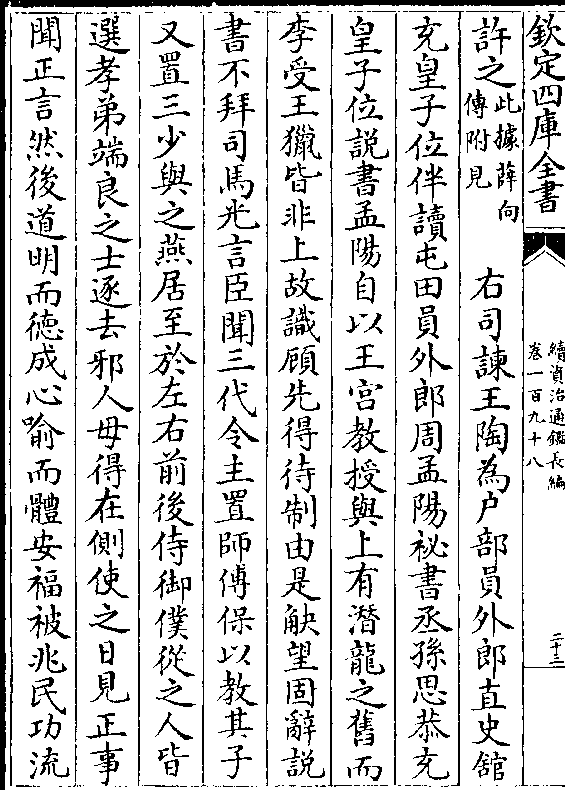 欽定四庫全書
續資治通鑑長編
卷一百九十八
二十三
許之此據薛向
傳附見
右司諫王陶為户部員外郎直史舘
充皇子位伴讀屯田員外郎周孟陽祕書丞孫思恭充
皇子位説書孟陽自以王宫教授與上有潛龍之舊而
李受王獵皆非上故識顧先得待制由是觖望固辭説
書不拜司馬光言臣聞三代令主置師傅保以教其子
又置三少與之燕居至於左右前後侍御僕從之人皆
選孝弟端良之士逐去邪人毋得在側使之日見正事
聞正言然後道明而徳成心喻而體安福被兆民功流